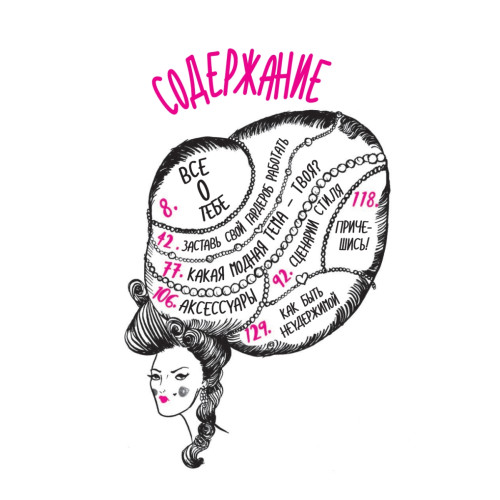 СОДЕРЖАНИЕ
8. ВСЕ
О
ТЕБЕ
42. ЗАСТАВЬ СВОЙ ГАРДЕРОБ РАБОТАТЬ
77. КАКАЯ МОДНАЯ ТЕМА – ТВОЯ?
92. СЦЕНАРИИ СТИЛЯ
106. АКСЕССУАРЫ
118.
ПРИЧЕ-
ШИСЬ!
129. КАК БЫТЬ
НЕУДЕРЖИМОЙ